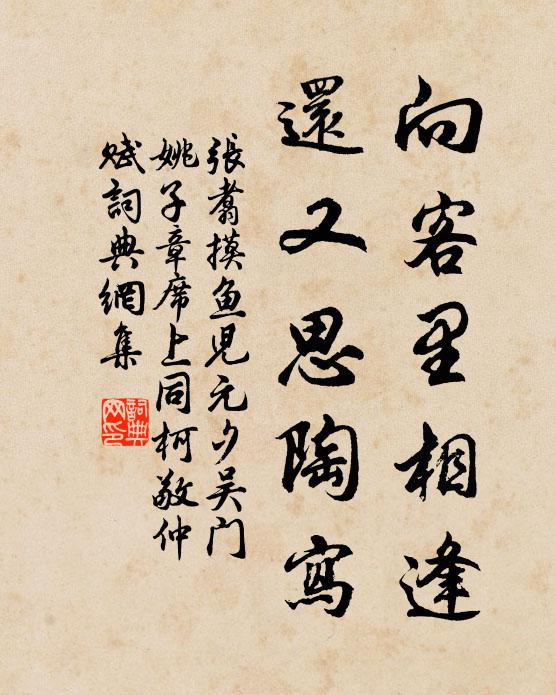 向客里相逢
還又思陶寫
張翥摸鱼児元夕吴门
姚子章席上同柯敬仲
赋詞典網集
詞典
网印